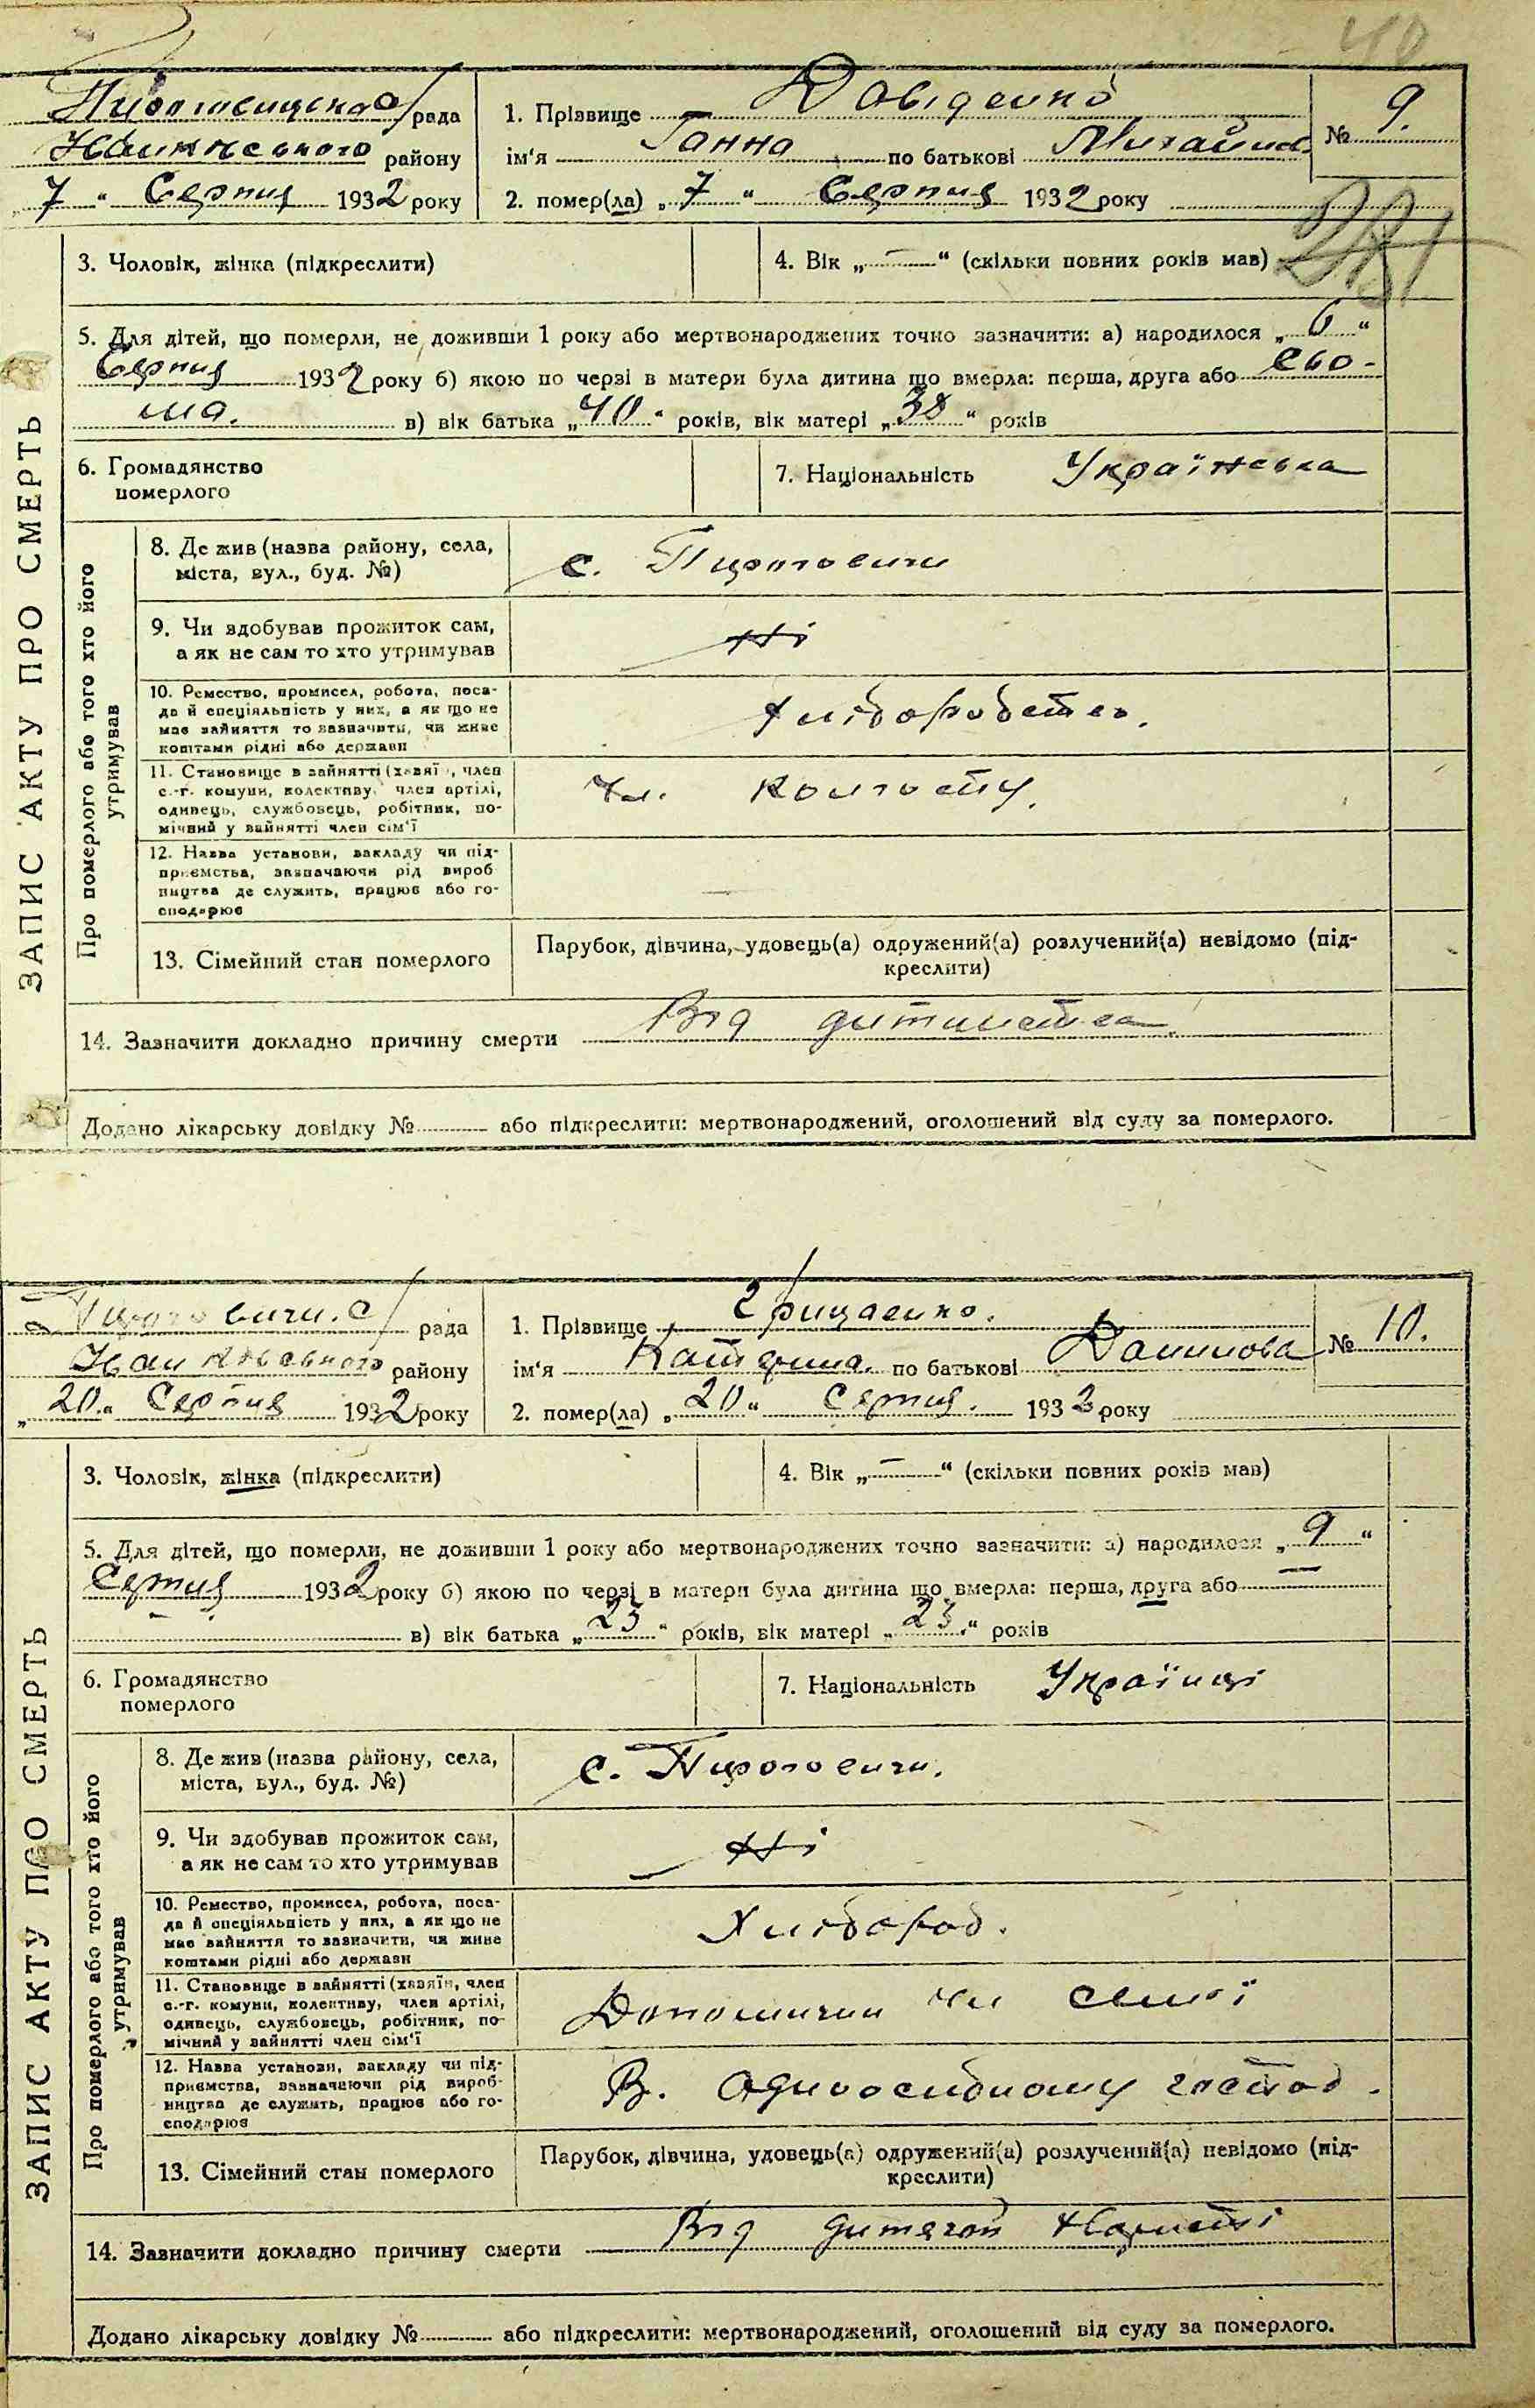 40
рада
1. Прізвище Давиденко
№ 9.
району
ім'я Ганна по батькові
7 " Серпня 1932 року
2. помер(ла) „ 7 " Серпня 1932 року
3. Чоловік, жінка (підкреслити)
4. Вік „ — " (скільки повних років мав)
5. Для дітей, що померли, не доживши 1 року або мертвонароджених точно зазначити: а) народилося „ 6 "
Серпня 1932 року б) якою по черзі в матери була дитина що вмерла: перша, друга або сьо-
ма. в) вік батька „ 40 " років, вік матері „ 38 " років
6. Громадянство
померлого
7. Національність Українська
ЗАПИС АКТУ ПРО СМЕРТЬ
Про померлого або того хто його
утримував
8. Де жив (назва району, села,
міста, вул., буд. №)
с. Пироговичи
9. Чи здобував прожиток сам,
а як не сам то хто утримував
Ні
10. Ремество, промисел, робота, поса-
да й спеціяльність у них, а як що не
має зайняття то зазначити, чи живе
коштами рідні або держави
Хліборобство.
11. Становище в зайнятті (хазяїн, член
с.-г. комуни, колективу, член артілі,
одинець, службовець, робітник, по-
мічний у зайнятті член сім'ї
Чл. колгоспу.
12. Назва установи, закладу чи під-
приємства, зазначаючи рід вироб
ництва де служить, працює або го-
сподарює
—
13. Сімейний стан померлого
Парубок, дівчина, удовець(а) одружений(а) розлучений(а) невідомо (під-
креслити)
14. Зазначити докладно причину смерти Від
Додано лікарську довідку № або підкреслити: мертвонароджений, оголошений від суду за померлого.
Пироговичи. с/рада
1. Прізвище Грицаенко.
№ 10.
району
ім'я Катерина. по батькові Данилова
„ 20 " Серпня 1932 року
2. помер(ла) „ 20 " Серпня. 1932 року
3. Чоловік, жінка (підкреслити)
4. Вік „ — " (скільки повних років мав)
5. Для дітей, що померли, не доживши 1 року або мертвонароджених точно зазначити: а) народилося „ 9 "
Серпня 1932 року б) якою по черзі в матери була дитина що вмерла: перша, друга або —
— в) вік батька „ 25 " років, вік матері „ 25 " років
6. Громадянство
померлого
7. Національність Українці
ЗАПИС АКТУ ПРО СМЕРТЬ
Про померлого або того хто його
утримував
8. Де жив (назва району, села,
міста, вул., буд. №)
с. Пироговичи.
9. Чи здобував прожиток сам,
а як не сам то хто утримував
Ні
10. Ремество, промисел, робота, поса-
да й спеціяльність у них, а як що не
має зайняття то зазначити, чи живе
коштами рідні або держави
Хлібороб.
11. Становище в зайнятті (хазяїн, член
с.-г. комуни, колективу, член артілі,
одинець, службовець, робітник, по-
мічний у зайнятті член сім'ї
чл сімї
12. Назва установи, закладу чи під-
приємства, зазначаючи рід вироб-
ництва де служить, працює або го-
сподарює
В. Одноосибному господ.
13. Сімейний стан померлого
Парубок, дівчина, удовець(а) одружений(а) розлучений(а) невідомо (під-
креслити)
14. Зазначити докладно причину смерти Від
Додано лікарську довідку № або підкреслити: мертвонароджений, оголошений від суду за померлого.